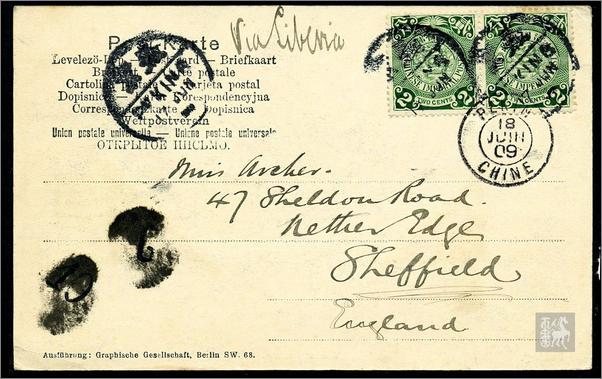 Post-Karte
Via Siberia
Levelező-Lap — Postcard — Briefkaart
Carte postale
Cartolina postale — Tarjeta postal
Dopisnica — Correspondencyjna
Correspondenzkarte — Dopisnica
Weltpostverein
Union postale universelle — Unione postale universale
ОТКРЫТОЕ ПИСЬМО.
2 TWO CENTS 2
2 TWO CENTS 2
PEKING
18
JUIN
09
CHINE
Miss Archer.
47 Sheldon Road.
Nether Edge
Sheffield
England
Ausführung: Graphische Gesellschaft, Berlin SW. 68.